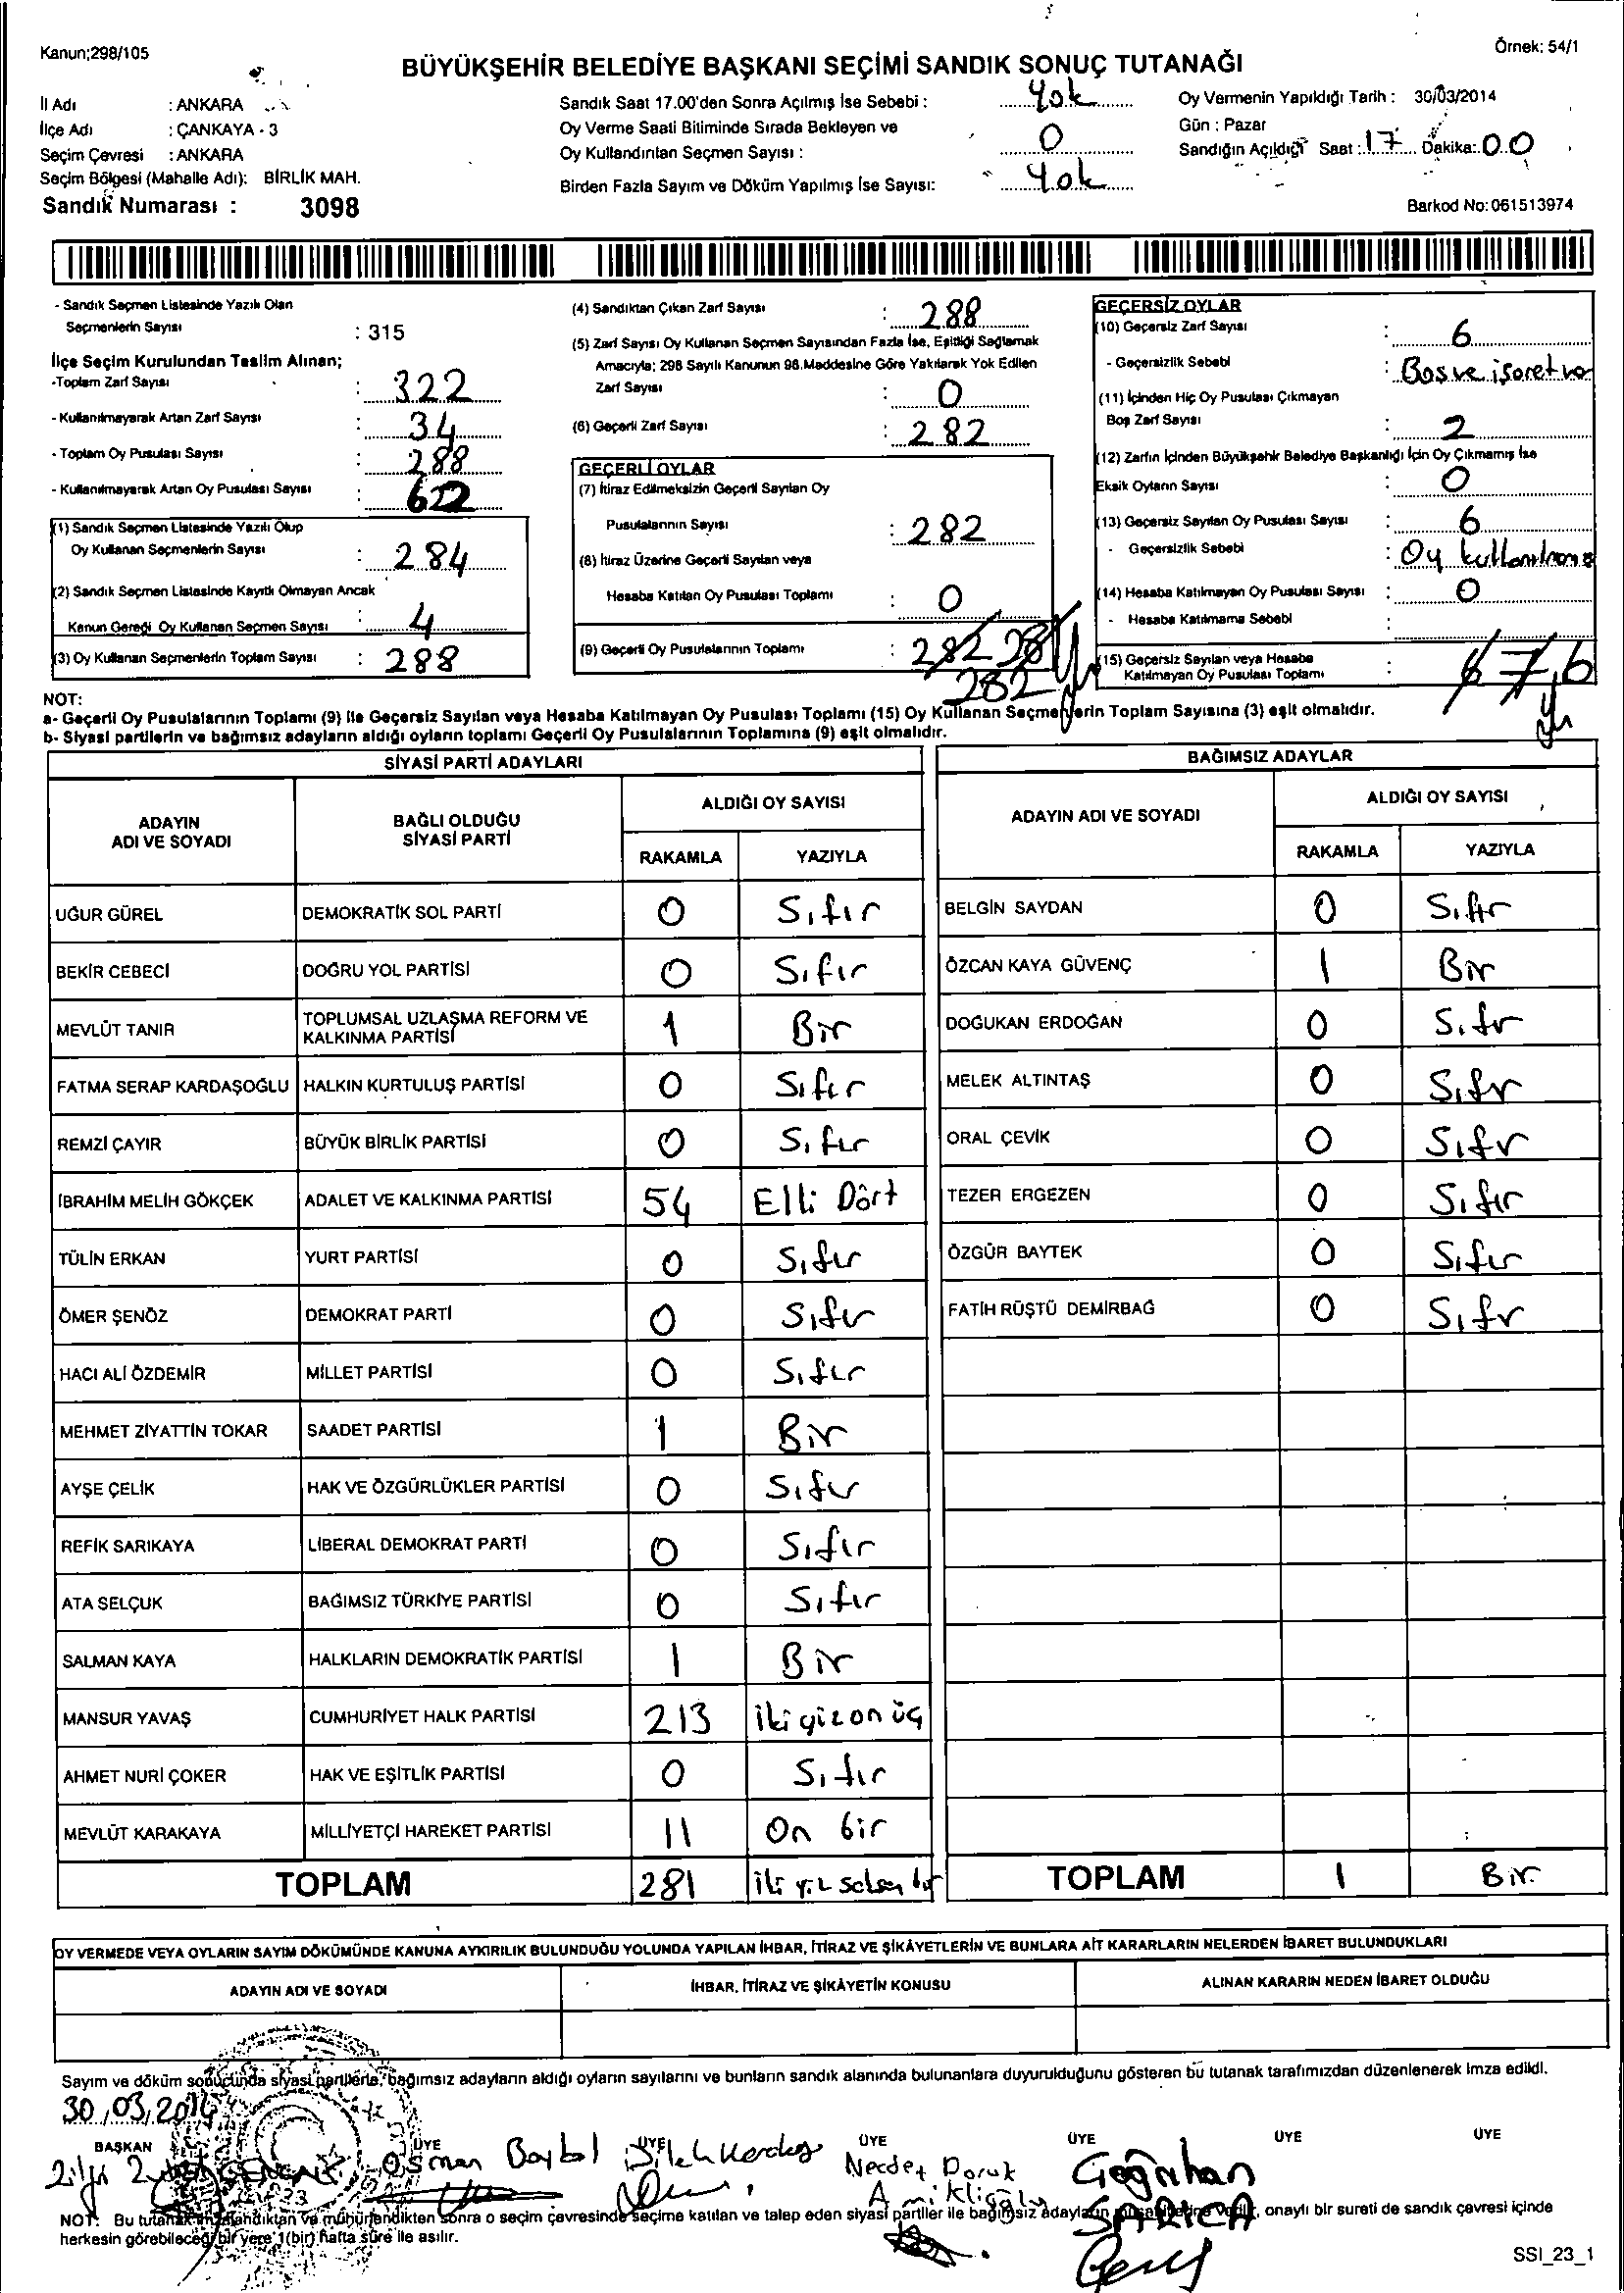 Kanun;298/105
Örnek: 54/1
BÜYÜKŞEHİR BELEDİYE BAŞKANI SEÇİMİ SANDIK SONUÇ TUTANAĞI
İl Adı : ANKARA
İlçe Adı : ÇANKAYA - 3
Seçim Çevresi : ANKARA
Seçim Bölgesi (Mahalle Adı): BİRLİK MAH.
Sandık Numarası : 3098
Sandık Saat 17.00'den Sonra Açılmış İse Sebebi : Yok
Oy Verme Saati Bitiminde Sırada Bekleyen ve
Oy Kullandırılan Seçmen Sayısı : 0
Birden Fazla Sayım ve Döküm Yapılmış İse Sayısı: Yok
Oy Vermenin Yapıldığı Tarih : 30/03/2014
Gün : Pazar
Sandığın Açıldığı Saat : 17 Dakika: 00
Barkod No: 061513974
- Sandık Seçmen Listesinde Yazılı Olan
Seçmenlerin Sayısı : 315
İlçe Seçim Kurulundan Teslim Alınan;
-Toplam Zarf Sayısı : 322
- Kullanılmayarak Artan Zarf Sayısı : 34
- Toplam Oy Pusulası Sayısı : 288
- Kullanılmayarak Artan Oy Pusulası Sayısı :
(1) Sandık Seçmen Listesinde Yazılı Olup
Oy Kullanan Seçmenlerin Sayısı : 284
(2) Sandık Seçmen Listesinde Kayıtlı Olmayan Ancak
Kanun Gereği Oy Kullanan Seçmen Sayısı : 4
(3) Oy Kullanan Seçmenlerin Toplam Sayısı : 288
(4) Sandıktan Çıkan Zarf Sayısı : 288
(5) Zarf Sayısı Oy Kullanan Seçmen Sayısından Fazla İse, Eşitliği Sağlamak
Amacıyla; 298 Sayılı Kanunun 98.Maddesine Göre Yakılarak Yok Edilen
Zarf Sayısı : 0
(6) Geçerli Zarf Sayısı : 282
GEÇERLİ OYLAR
(7) İtiraz Edilmeksizin Geçerli Sayılan Oy
Pusulalarının Sayısı : 282
(8) İtiraz Üzerine Geçerli Sayılan veya
Hesaba Katılan Oy Pusulası Toplamı : 0
(9) Geçerli Oy Pusulalarının Toplamı : 282 281
282
GEÇERSİZ OYLAR
(10) Geçersiz Zarf Sayısı : 6
- Geçersizlik Sebebi : Boş ve işaret var
(11) İçinden Hiç Oy Pusulası Çıkmayan
Boş Zarf Sayısı : 2
(12) Zarfın İçinden Büyükşehir Belediye Başkanlığı İçin Oy Çıkmamış İse
Eksik Oyların Sayısı : 0
(13) Geçersiz Sayılan Oy Pusulası Sayısı : 6
- Geçersizlik Sebebi : Oy
(14) Hesaba Katılmayan Oy Pusulası Sayısı : 0
- Hesaba Katılmama Sebebi :
(15) Geçersiz Sayılan veya Hesaba
Katılmayan Oy Pusulası Toplamı : 6 7 6
NOT:
a- Geçerli Oy Pusulalarının Toplamı (9) ile Geçersiz Sayılan veya Hesaba Katılmayan Oy Pusulası Toplamı (15) Oy Kullanan Seçmenlerin Toplam Sayısına (3) eşit olmalıdır.
b- Siyasi partilerin ve bağımsız adayların aldığı oyların toplamı Geçerli Oy Pusulalarının Toplamına (9) eşit olmalıdır.
SİYASİ PARTİ ADAYLARI
ADAYIN ADI VE SOYADI BAĞLI OLDUĞU SİYASİ PARTİ ALDIĞI OY SAYISI
RAKAMLA YAZIYLA
UĞUR GÜREL DEMOKRATİK SOL PARTİ 0 Sıfır
BEKİR CEBECİ DOĞRU YOL PARTİSİ 0 Sıfır
MEVLÜT TANIR TOPLUMSAL UZLAŞMA REFORM VE KALKINMA PARTİSİ 1 Bir
FATMA SERAP KARDAŞOĞLU HALKIN KURTULUŞ PARTİSİ 0 Sıfır
REMZİ ÇAYIR BÜYÜK BİRLİK PARTİSİ 0 Sıfır
İBRAHİM MELİH GÖKÇEK ADALET VE KALKINMA PARTİSİ 54 Elli Dört
TÜLİN ERKAN YURT PARTİSİ 0 Sıfır
ÖMER ŞENÖZ DEMOKRAT PARTİ 0 Sıfır
HACI ALİ ÖZDEMİR MİLLET PARTİSİ 0 Sıfır
MEHMET ZİYATTİN TOKAR SAADET PARTİSİ 1 Bir
AYŞE ÇELİK HAK VE ÖZGÜRLÜKLER PARTİSİ 0 Sıfır
REFİK SARIKAYA LİBERAL DEMOKRAT PARTİ 0 Sıfır
ATA SELÇUK BAĞIMSIZ TÜRKİYE PARTİSİ 0 Sıfır
SALMAN KAYA HALKLARIN DEMOKRATİK PARTİSİ 1 Bir
MANSUR YAVAŞ CUMHURİYET HALK PARTİSİ 213 ikiyüzonüç
AHMET NURİ ÇOKER HAK VE EŞİTLİK PARTİSİ 0 Sıfır
MEVLÜT KARAKAYA MİLLİYETÇİ HAREKET PARTİSİ 11 On bir
TOPLAM 281 iki yüz seksen bir
BAĞIMSIZ ADAYLAR
ADAYIN ADI VE SOYADI ALDIĞI OY SAYISI
RAKAMLA YAZIYLA
BELGİN SAYDAN 0 Sıfır
ÖZCAN KAYA GÜVENÇ 1 Bir
DOĞUKAN ERDOĞAN 0 Sıfır
MELEK ALTINTAŞ 0 Sıfır
ORAL ÇEVİK 0 Sıfır
TEZER ERGEZEN 0 Sıfır
ÖZGÜR BAYTEK 0 Sıfır
FATİH RÜŞTÜ DEMİRBAĞ 0 Sıfır
TOPLAM 1 Bir.
OY VERMEDE VEYA OYLARIN SAYIM DÖKÜMÜNDE KANUNA AYKIRILIK BULUNDUĞU YOLUNDA YAPILAN İHBAR, İTİRAZ VE ŞİKÂYETLERİN VE BUNLARA AİT KARARLARIN NELERDEN İBARET BULUNDUKLARI
ADAYIN ADI VE SOYADI İHBAR, İTİRAZ VE ŞİKÂYETİN KONUSU ALINAN KARARIN NEDEN İBARET OLDUĞU
Sayım ve döküm sonucunda siyasi partilerle, bağımsız adayların aldığı oyların sayılarını ve bunların sandık alanında bulunanlara duyurulduğunu gösteren bu tutanak tarafımızdan düzenlenerek imza edildi.
30/03/2014
BAŞKAN ÜYE ÜYE ÜYE ÜYE ÜYE ÜYE
Osman Necdet Doruk Goğrıhan
SARICA
NOT: Bu tutanak imzalandıktan ve mühürlendikten sonra o seçim çevresinde seçime katılan ve talep eden siyasi partiler ile bağımsız adayların verilir, onaylı bir sureti de sandık çevresi içinde
herkesin görebileceği bir yere 1(bir) hafta süre ile asılır.
SSI_23_1